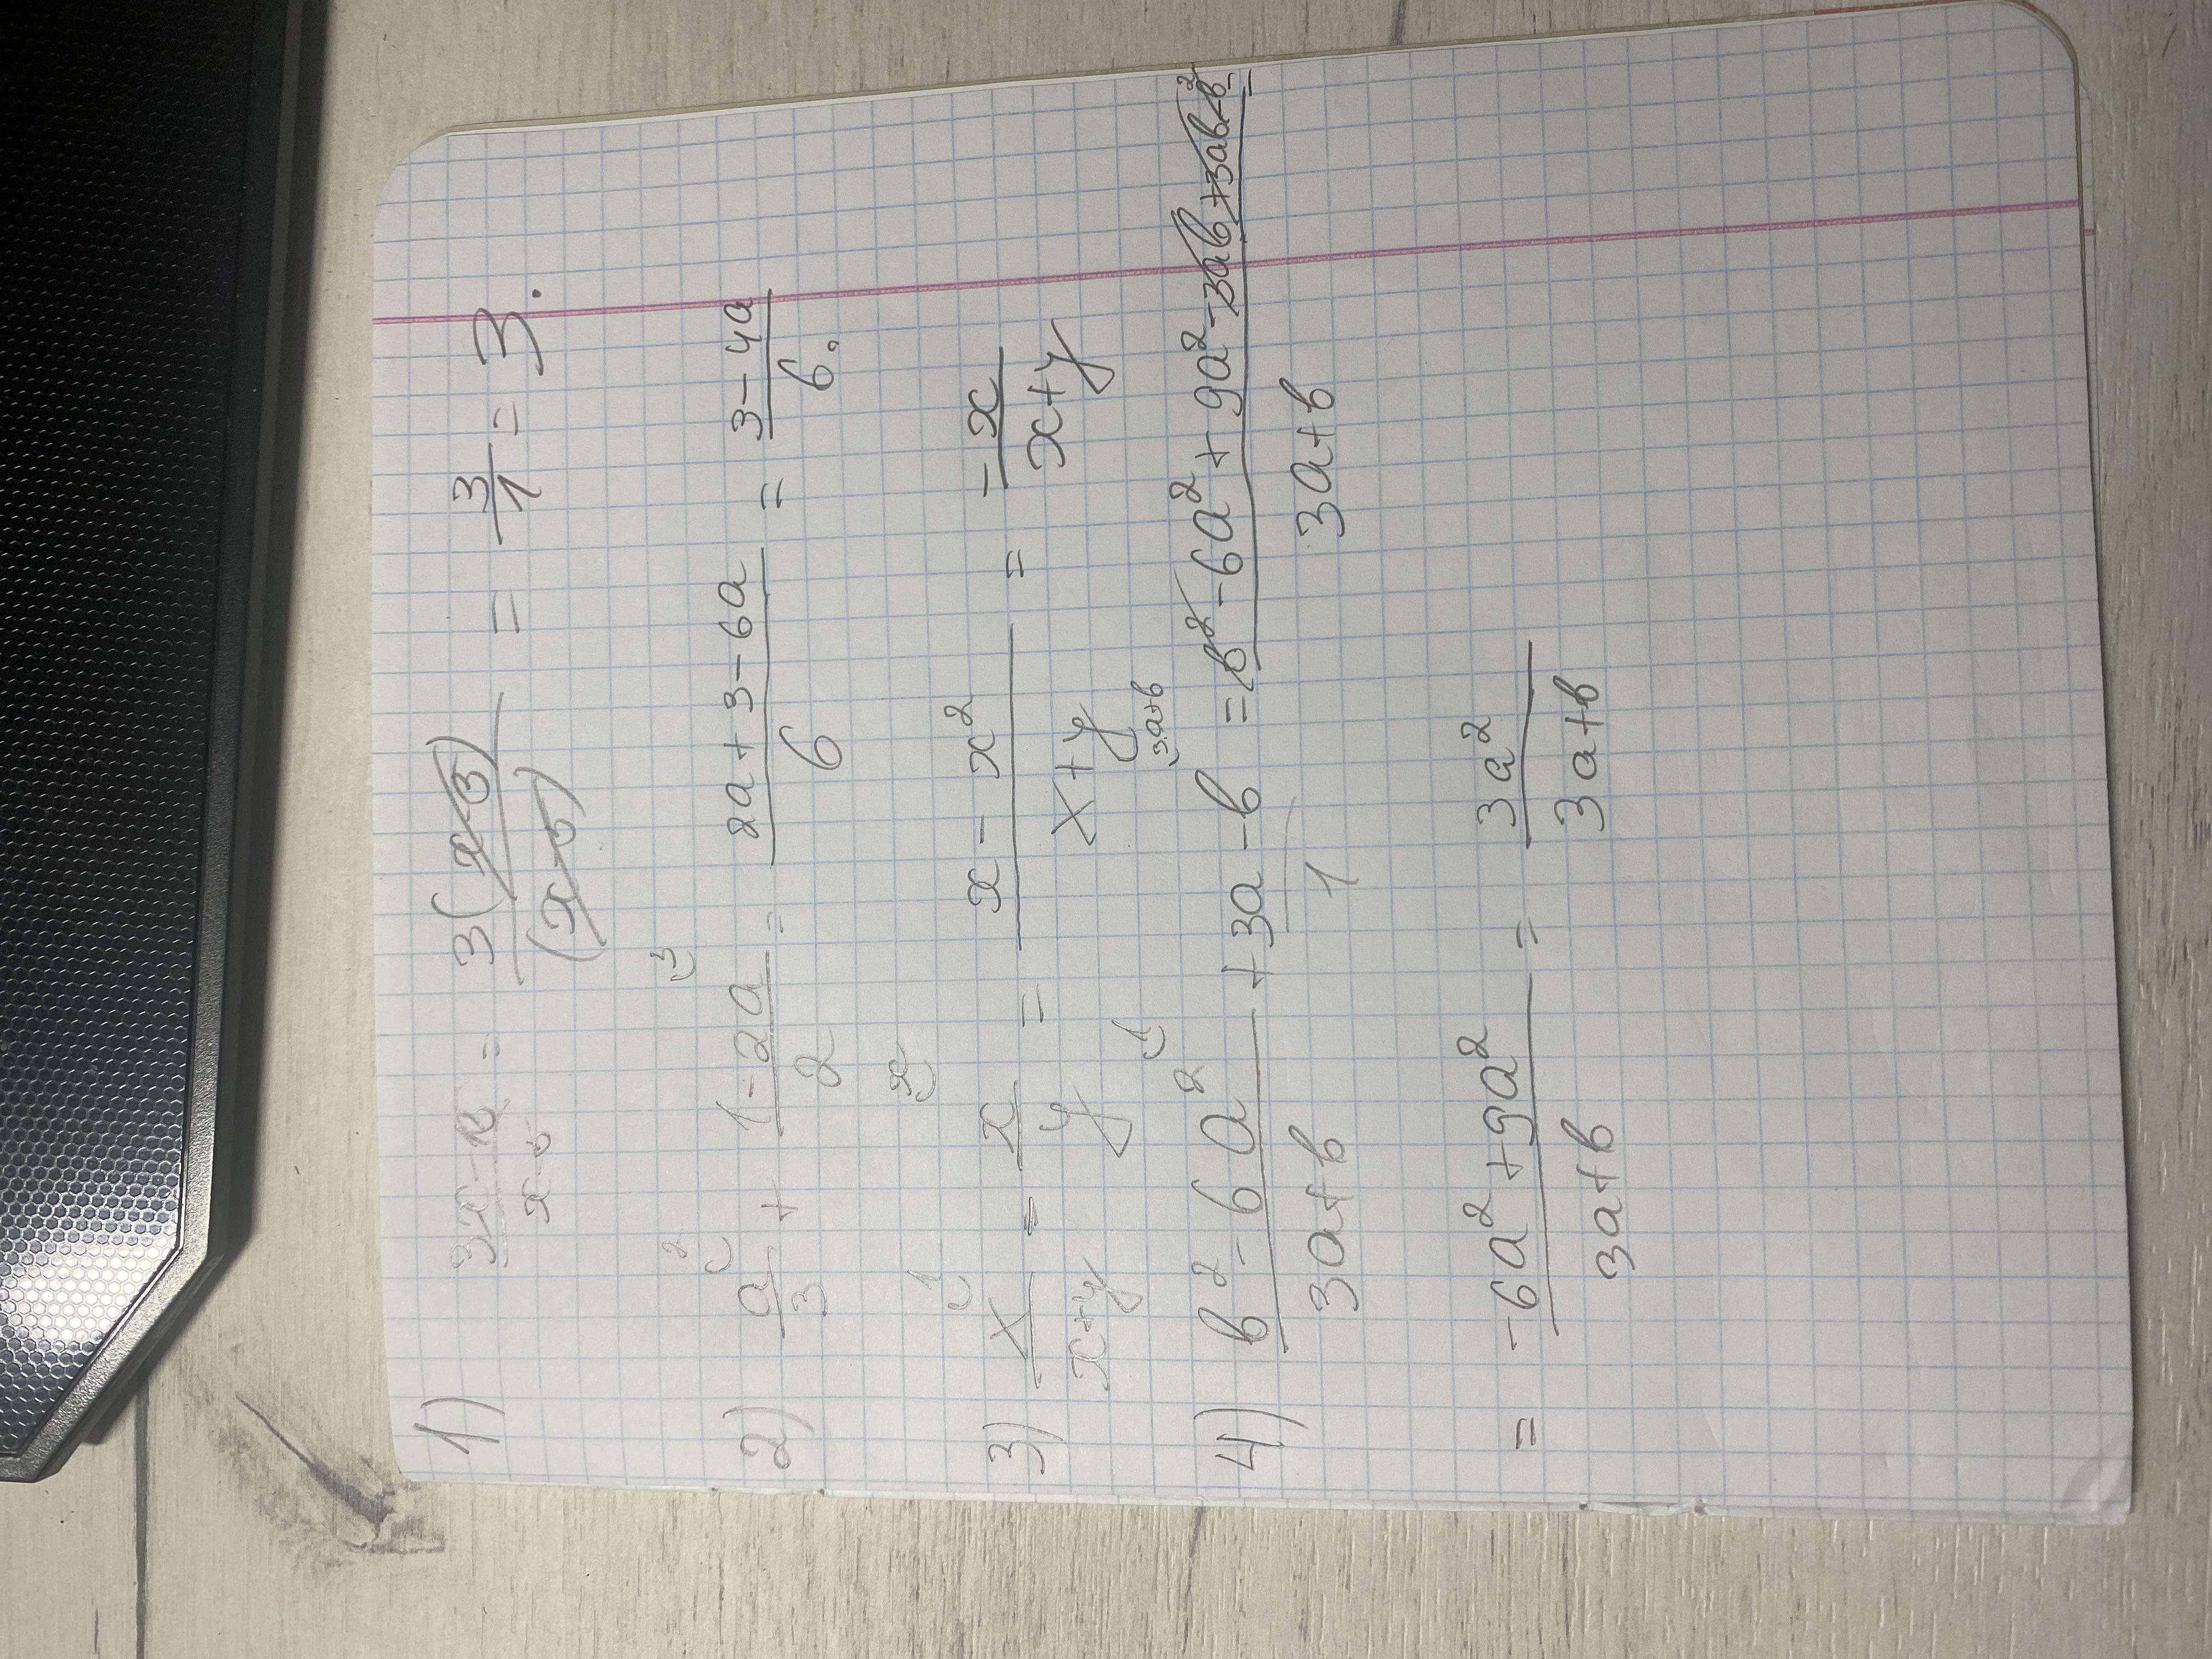 1) 3x-15/x-5 = 3(x-5)/(x-5) = 3/1 = 3.
2) a/3 ⁽² + 1-2a/2 ⁽³ = 2a+3-6a/6 = 3-4a/6.
3) x/x+y ⁽¹ - x/y ⁽ˣ = x-x²/x+y = -x/x+y
4) b²-6a²/3a+b ⁽¹ + 3a-b/1 ⁽³ᵃ⁺ᵇ = b²-6a²+9a²-3ab+3ab-b²/3a+b =
= -6a²+9a²/3a+b = 3a²/3a+b